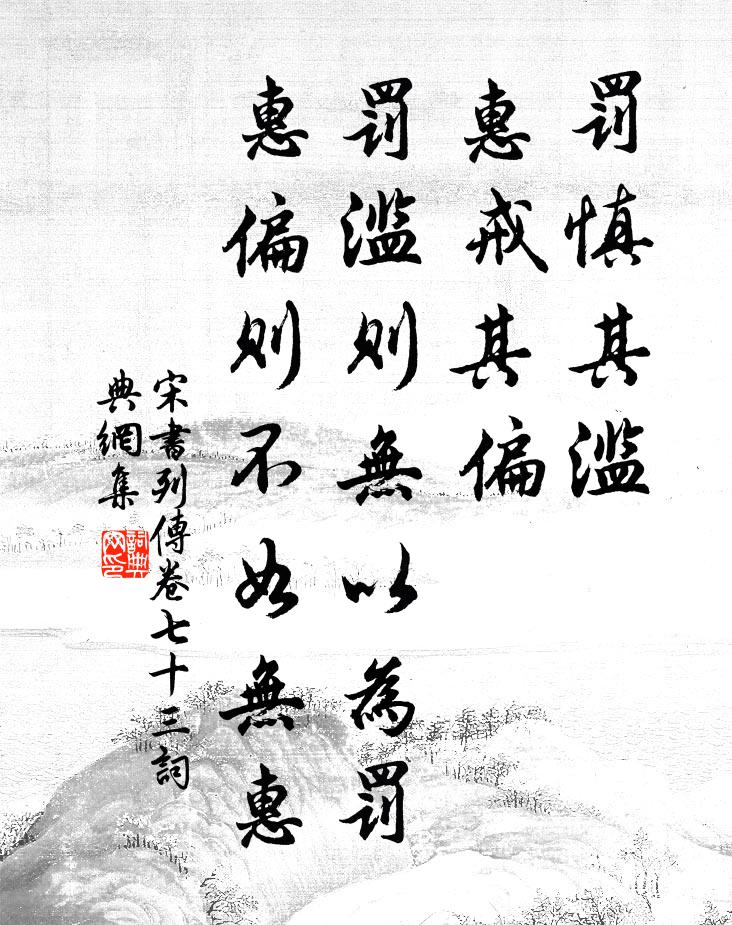 罰慎其濫
惠戒其偏
罰濫則無以為罰
惠偏則不如無惠
宋書列傳卷七十三詞
典網集
詞典網印